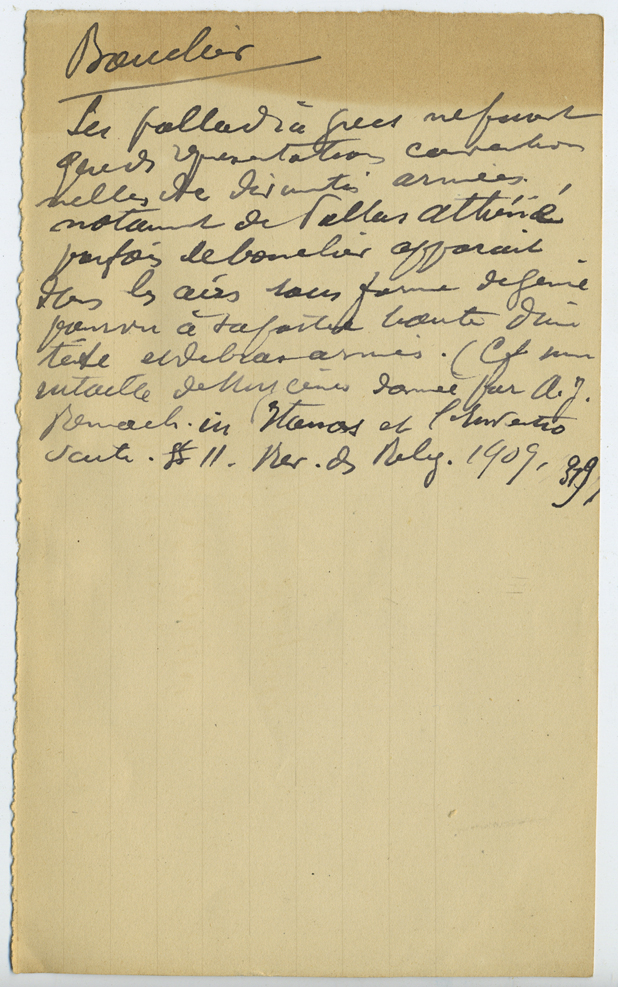 Bouclier
Les palladia grecs ne furent
que des représentations conventions
nelles de divinités armées.
notamt de Pallas Athéné
parfois le bouclier apparait
dans les airs sous forme de génie
à sa partie haute d'une
tête et de bras armés. (Cf une
intaille de Mycènes donnée par A. J.
Reinach. in Itanos et l'Inventio
Scuti. II. Rev. des Relig. 1909,